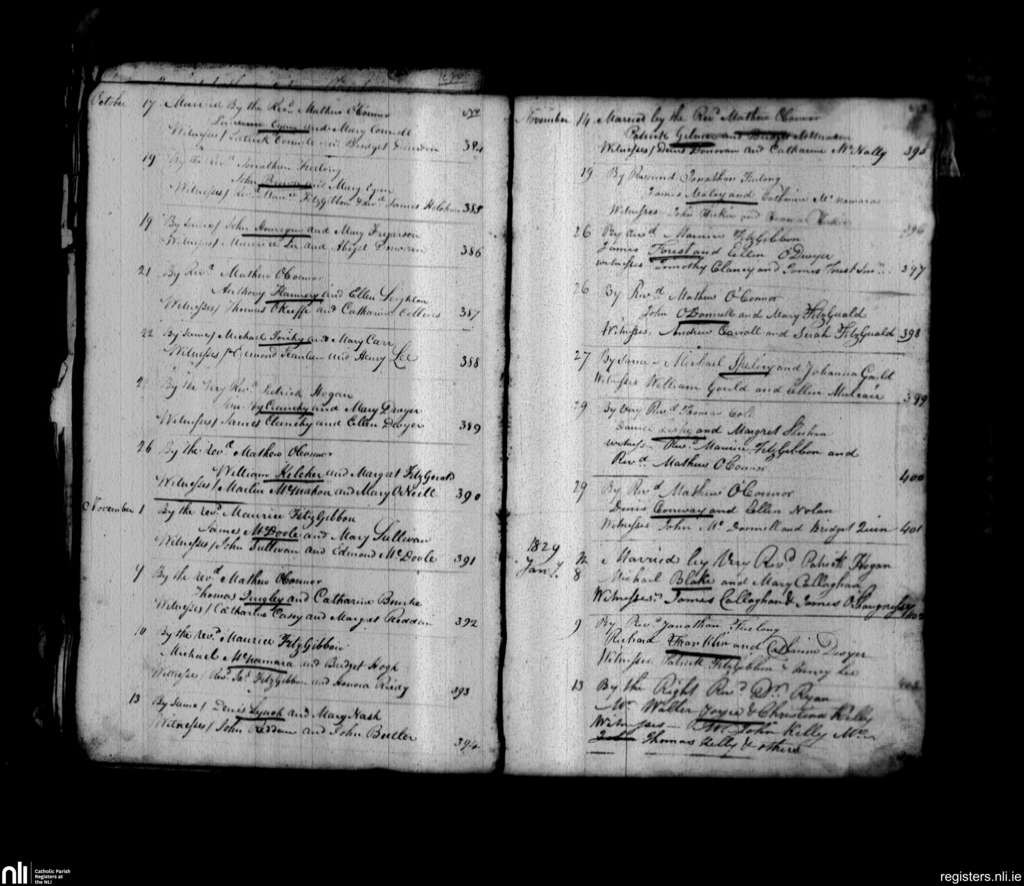 October 17 Married By the Revd. Mathew O'Connor No.
Eyers and Mary Connell
Witnesses/ Patrick Connell and Bridget 384
19 By the Revd. Jonathan Furlong
John and Mary Eyers
Witnesses/ Revd. FitzGibbon & Revd. James 385
19 By Same/ John and Mary Ferguson
Witness/ Maurice Lee and Donovan 386
21 By Revd. Mathew O'Connor
Anthony Flannery and Ellen
Witnesses/ Thomas O'Keeffe and Catharine Collins 387
22 By Same/ Michael and Mary Carr
Witnesses/ Edmond Scanlan and Henry Lee 388
By the Very Revd. Patrick Hogan
Clanchy and Mary Dwyer
Witnesses/ James Clanchy and Ellen Dwyer 389
26 By the revd. Mathew O'Connor
William Kelcher and Margat FitzGerald
Witnesses/ Martin McMahon and Mary O'Neill 390
November 1 By the revd. Maurice FitzGibbon
James McDoole and Mary Sullivan
Witnesses/ John Sullivan and Edmond McDoole 391
4 By the revd. Mathew O'Connor
Thomas Quigley and Catharine Bourke
Witnesses/ Catharine Casey and Margat Reddan 392
10 By the revd. Maurice FitzGibbon
Michael McNamara and Bridget Hogh
Witnesses/ Revd. FitzGibbon and Honora 393
13 By Same/ Denis Lynch and Mary Nash
Witnesses/ John Reddan and John Butler 394
November 14 Married by the Revd. Mathew O'Connor
Patrick and Bridget
Witnesses/ Denis Donovan and Catharine McNally 395
19 By Reverend Jonathan Furlong
James and Catherine McNamara
Witnesses John Hickie and Hickie 396
26 By Revd. Maurice FitzGibbon
James Forest and Ellen O'Dwyer
witnesses Timothy Clancy and James Forest 397
26 By Revd. Mathew O'Connor
John O'Donnell and Mary FitzGerald
Witnesses. Andrew Carroll and Sarah FitzGerald 398
27 By Same - Michael and Johanna Gould
Witnesses William Gould and Ellen Mulcair 399
29 By Very Revd. Thomas
and Margret Sheehan
witness - Revd. Maurice FitzGibbon and
Revd. Mathew O'Connor 400
29 By Revd. Mathew O'Connor
Denis Conway and Ellen Nolan
Witnesses John McDonnell and Bridget Quin 401
1829
Jany. 8 Married by Very Revd. Patrick Hogan
Michael Blake and Mary Callaghan
Witnesses. James Callaghan & James O'Shaugnessy
9 By Revd. Jonathan Furlong
Richard Franklin and Dwyer
Witnesses Patrick FitzGibbon & Henry Lee
13 By the Right Revd. Dr. Ryan
Mr. Walter Joyce & Christina Kelly
Witnesses - Mr. John Kelly Mr.
Thomas Kelly & others
nli
Catholic Parish
Registers at
the NLI
registers.nli.ie